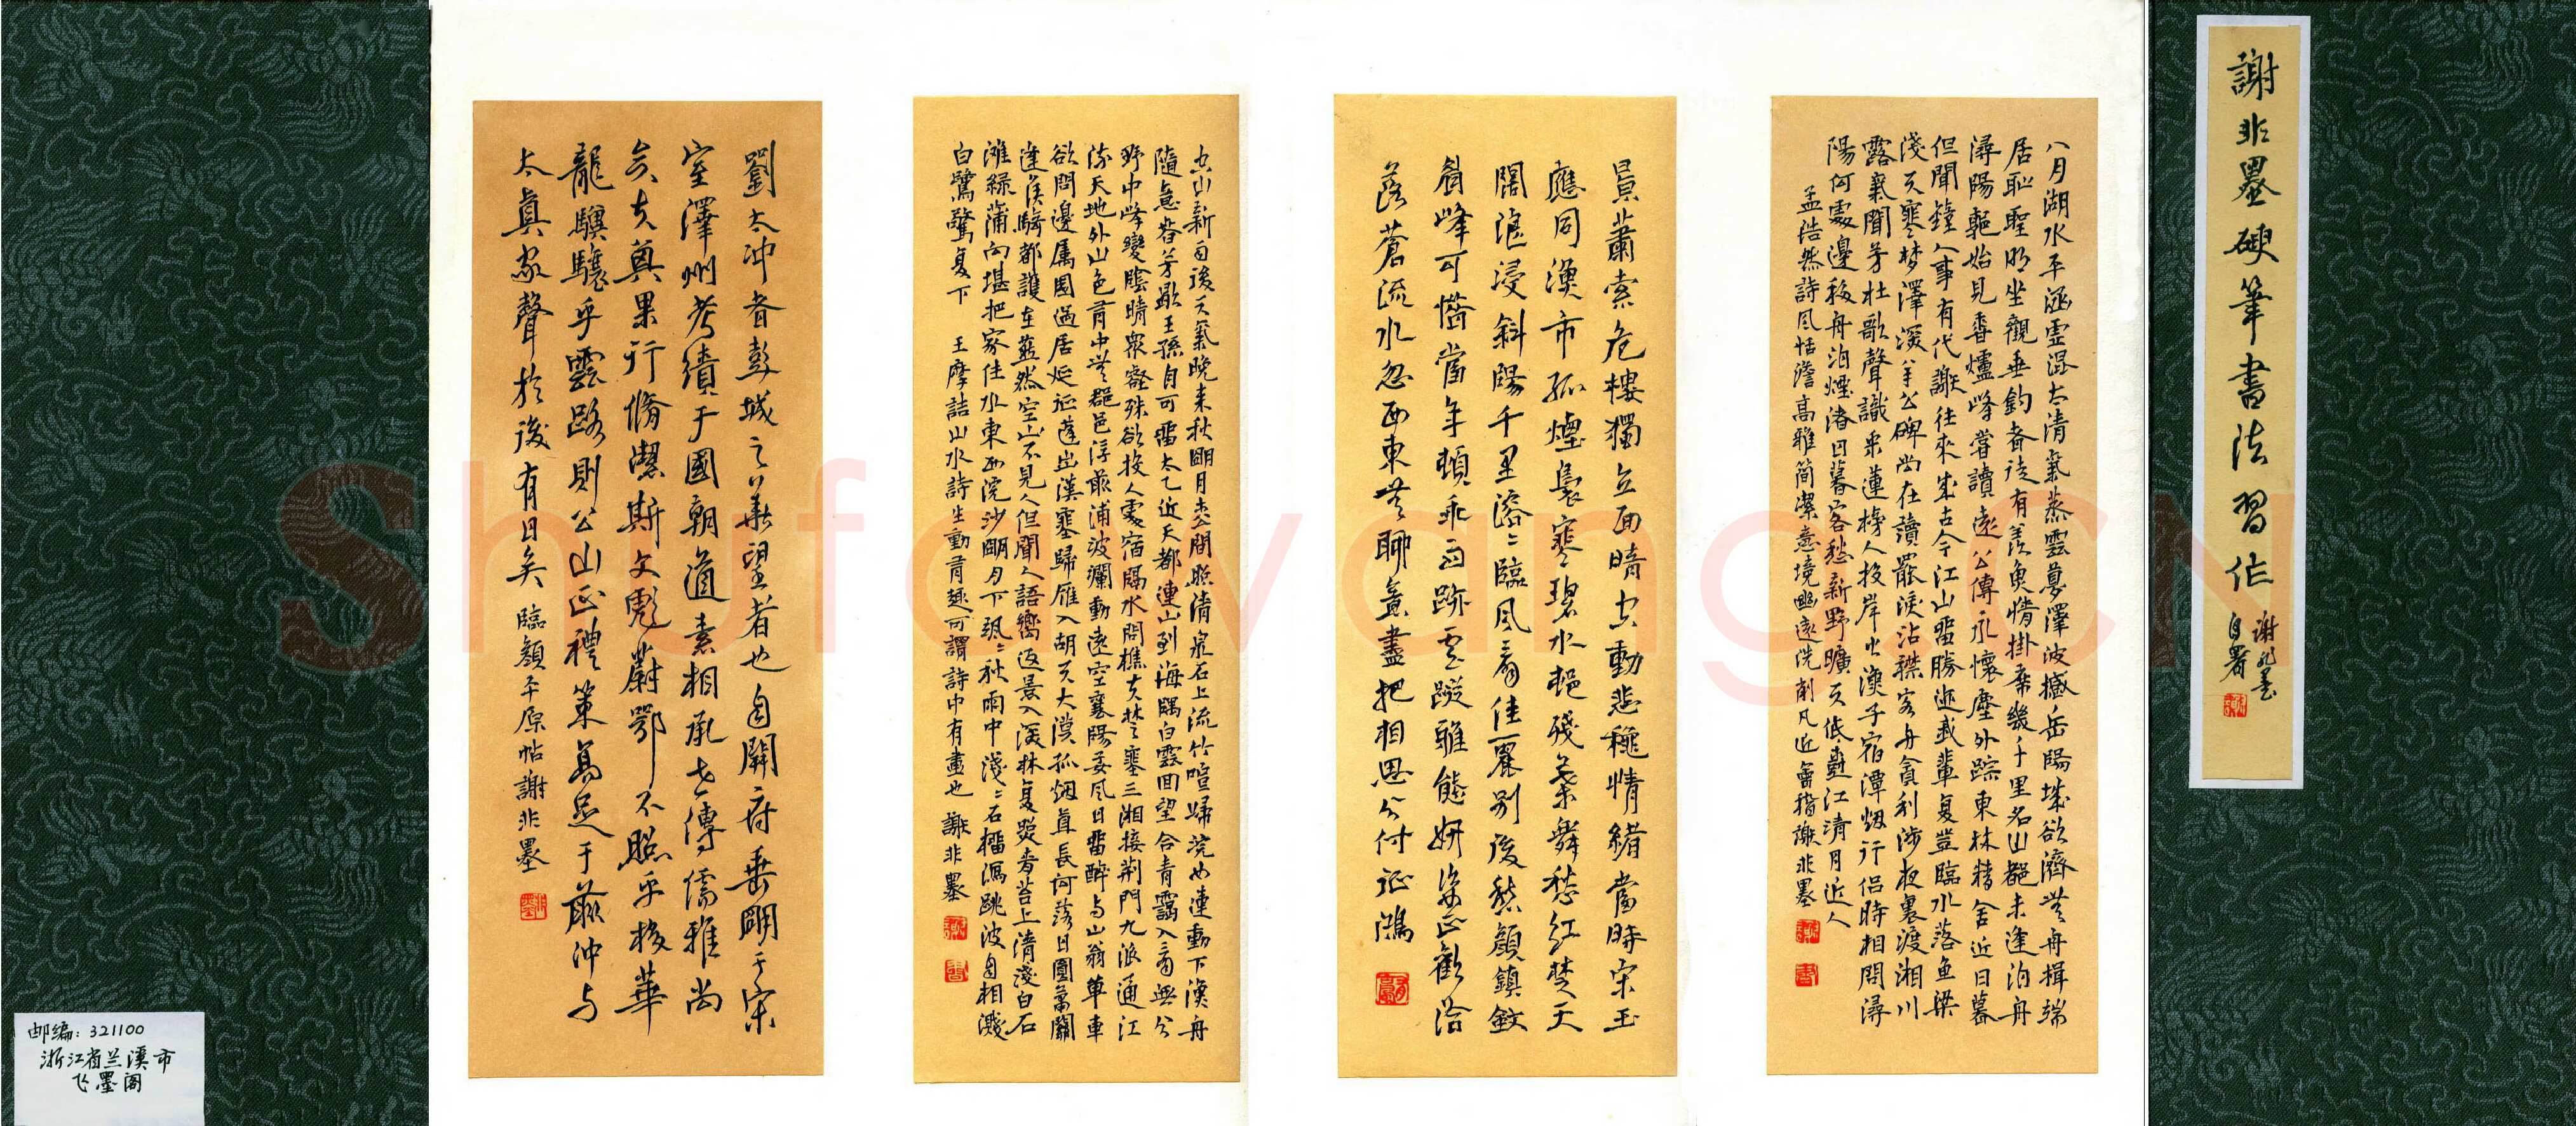 謝非墨硬筆書法習作
謝非墨
自署
八月湖水平涵虛混太清氣蒸雲夢澤波撼岳陽城欲濟無舟楫端
居恥聖明坐觀垂釣者徒有羨魚情掛席幾千里名山都未逢泊舟
潯陽郭始見香爐峰嘗讀遠公傳永懷塵外踪東林精舍近日暮
但聞鐘人事有代謝往來成古今江山留勝迹我輩復登臨水落魚梁
淺天寒梦澤深羊公碑尚在讀罷淚沾襟客舟貪利涉夜裏渡湘川
露氣聞芳杜歌聲識采蓮榜人投岸火漁子宿潭烟行侶時相問潯
陽何處邊移舟泊煙渚日暮客愁新野曠天低樹江清月近人
孟浩然詩風恬澹高雅簡潔意境幽遠洗削凡近 謝非墨
景蕭索危樓獨立面晴空動悲穐情緒當時宋玉
應同漁市孤煙裊寒碧水邨殘葉舞愁紅楚天
闊浪浸斜陽千里溶溶臨風想佳麗別後愁顏鎮斂
眉峰可惜當年頓乖雨跡雲蹤雅態妍姿正歡洽
落花流水忽西東無聊意盡把相思分付征鴻
空山新雨後天氣晚來秋明月松間照清泉石上流竹喧歸浣女蓮動下漁舟
隨意春芳歇王孫自可留太乙近天都連山到海隅白雲回望合青靄入看無分
野中峰變陰晴眾壑殊欲投人處宿隔水問樵夫楚塞三湘接荊門九派通江
流天地外山色有中無郡邑浮前浦波瀾動遠空襄陽好風日留醉與山翁單車
欲問邊屬國過居延征蓬出漢塞歸雁入胡天大漠孤烟直長河落日圓蕭關
逢候騎都護在燕然空山不見人但聞人語響返景入深林复照青苔上清淺白石
灘綠蒲向堪把家住水東西浣沙明月下颯颯秋雨中淺淺石榴瀉跳波自相濺
白鷺驚复下 王摩詰山水詩生動有趣可謂詩中有畫也 謝非墨
劉太沖者彭城之華望者也自開府垂明于宋
室澤州考績于國朝道素相承世傳儒雅尚
矣夫其果行脩潔斯文彪蔚鄂不照乎移華
龍驥驤乎雲路則公山正禮策高足于前沖與
太真嗣家聲於後有日矣 臨顏平原帖謝非墨
邮编：321100
浙江省兰溪市
飞墨阁
Shufawang.CN